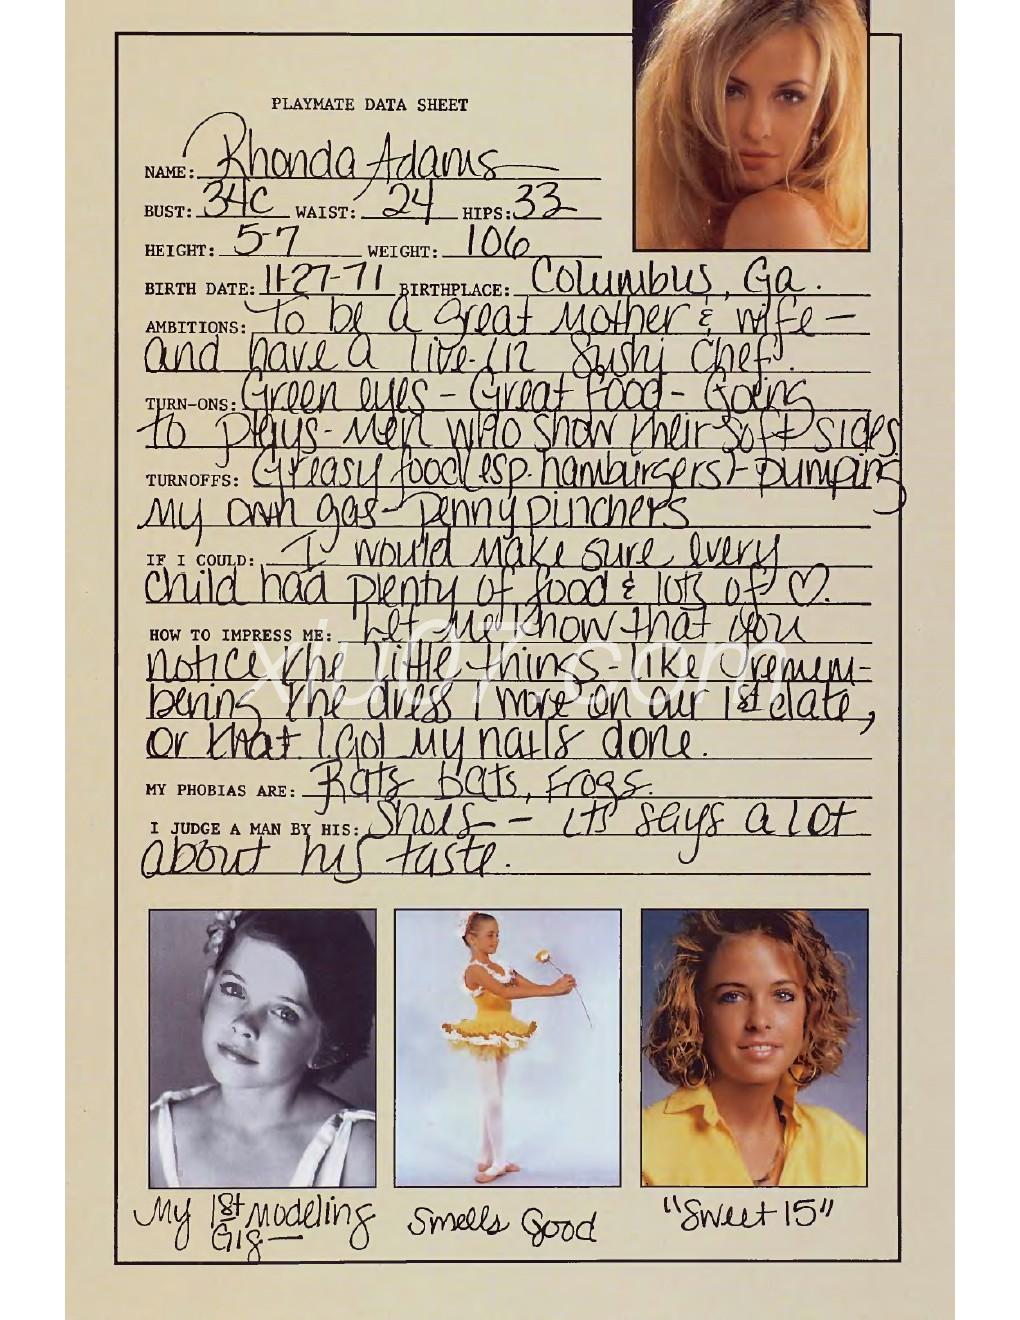 PLAYMATE DATA SHEET
NAME: Rhonda Adams
BUST: 34C WAIST: 24 HIPS: 33
HEIGHT: 5-7 WEIGHT: 106
BIRTH DATE: 11-27-71 BIRTHPLACE: Columbus, Ga.
AMBITIONS: To be a great Mother & wife —
and have a live-in Sushi Chef!
TURN-ONS: Green eyes - Great food - Going
to plays - Men who show their soft sides
TURNOFFS: Greasy food (esp. hamburgers) - pumping
My own gas - penny pinchers
IF I COULD: I would make sure every
child had plenty of food & lots of ♡.
HOW TO IMPRESS ME: Let Me Know that you
notice the little things - like remem-
bering the dress I wore on our 1st date,
or that I got my nails done.
MY PHOBIAS ARE: Rats, bats, frogs.
I JUDGE A MAN BY HIS: Shoes - its says a lot
about his taste.
xiu07.com
My 1st Modeling
Gig —
Smells Good
"Sweet 15"